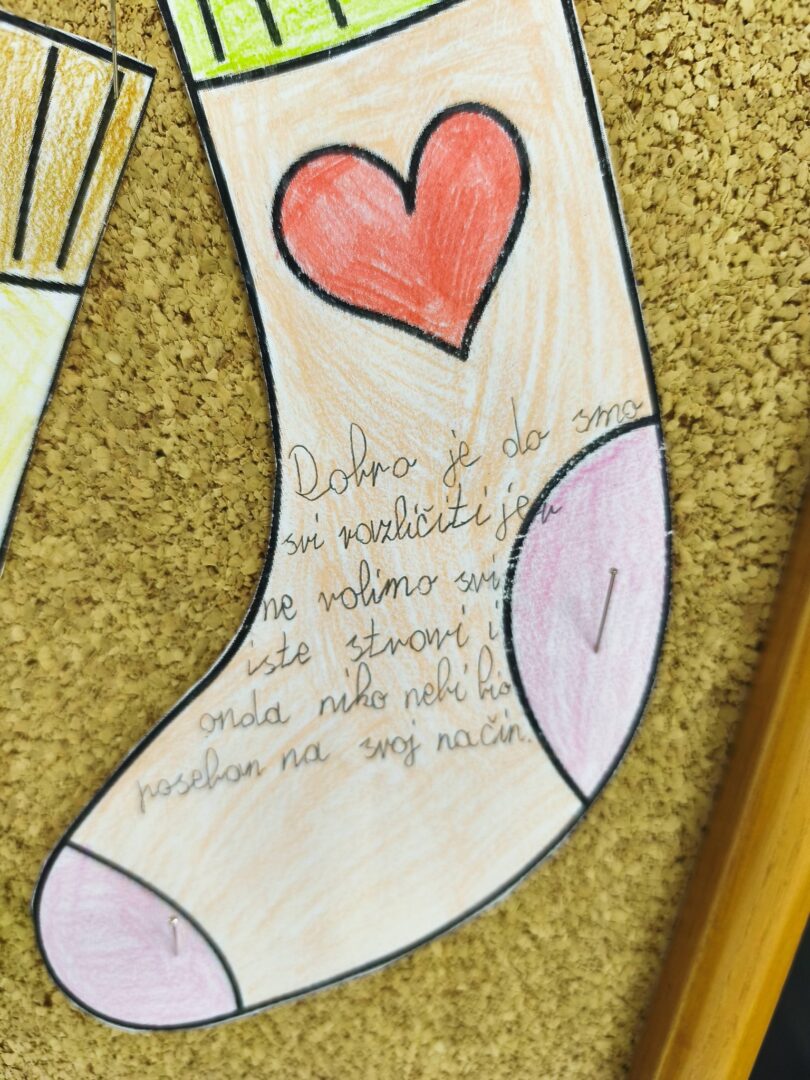 Dobro je da smo
svi različiti jer
ne volimo svi
iste stvari i
onda niko nebi bio
poseban na svoj način.